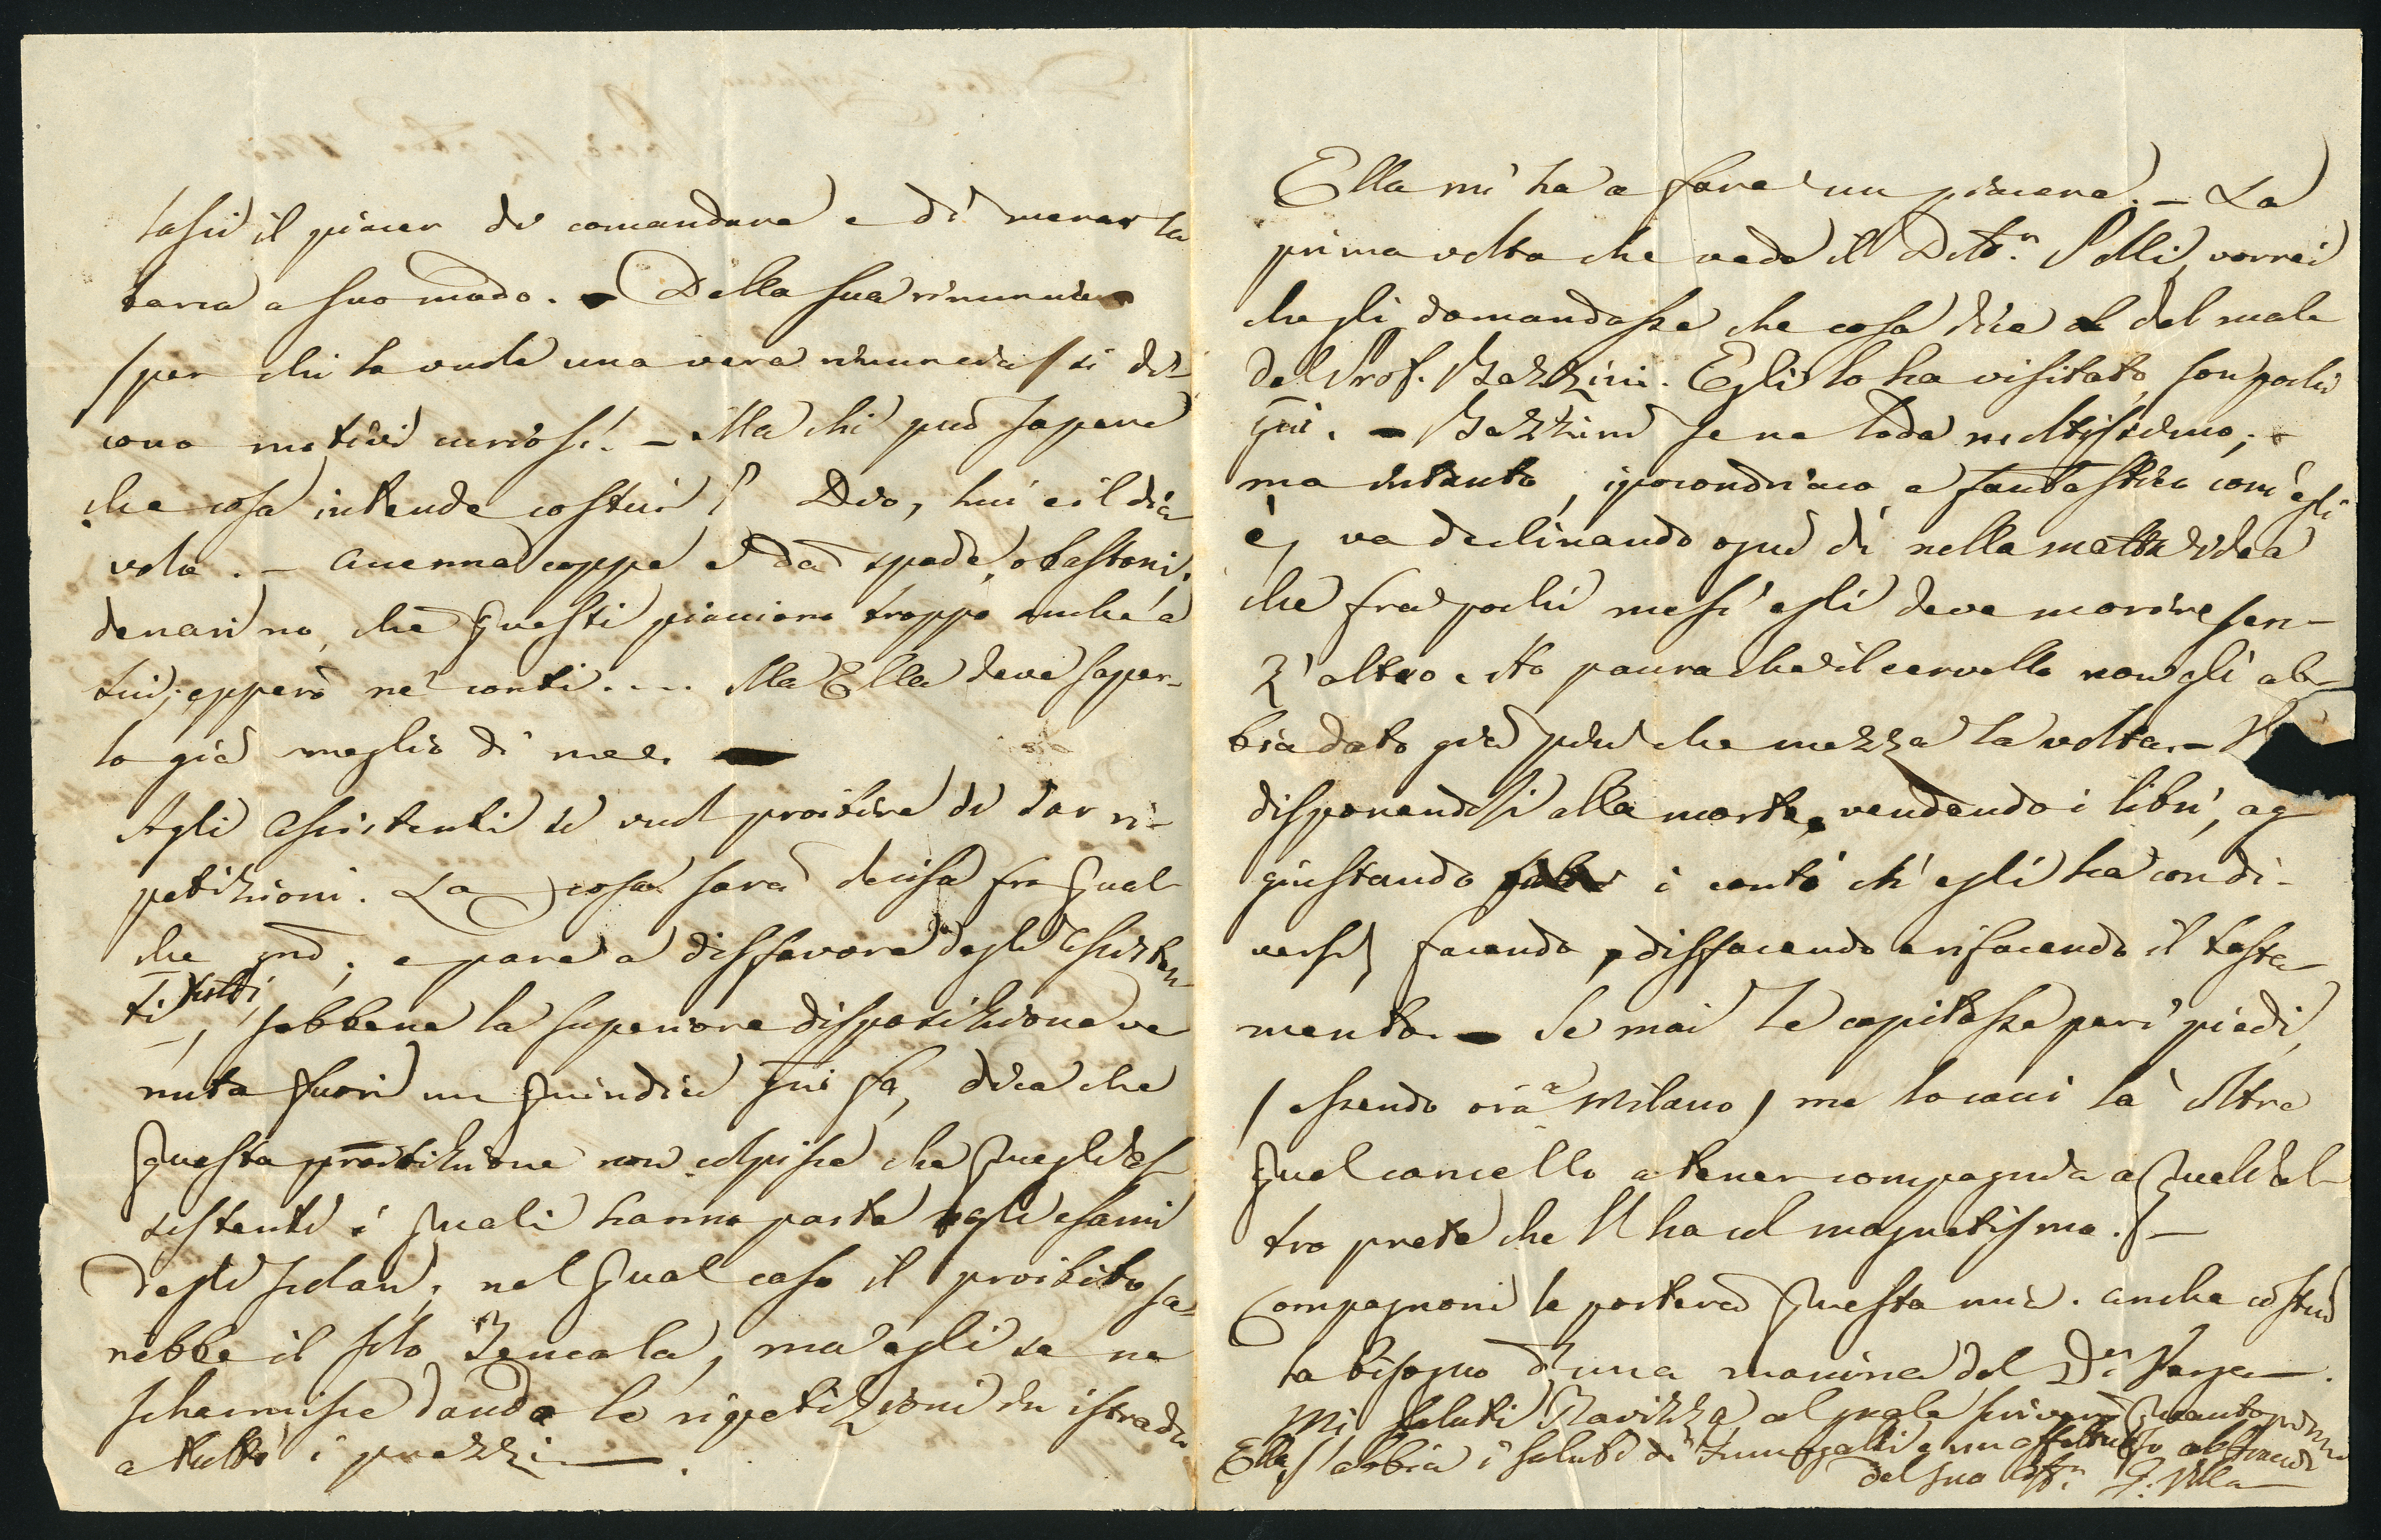 lasci il piacer di comandare e di menar la
barca a suo modo. – Della sua rinuncia
(per chi la vuole una vera rinuncia) si di-
cono motivi curiosi. – Ma chi può sapere
che cosa intende costui? Dio, lui e il dia
volo. – accenna coppe e dà spade, o bastoni;
denari no, chè questi piacciono troppo anche a
lui; epperò ne' conti.... Ma Ella deve saper-
lo già meglio di me. –
Agli Assistenti si vuol proibire di dar ri-
petizioni. La cosa sarà decisa fra qual
che gno, e pare a disfavore degli Assisten
ti tutti, sebbene la superiore disposizione ve
nuta fuori un quindici gni fa, dica che
questa proibizione non colpisce che quegli as
sistenti i quali hanno parte agli esami
degli scolari; nel qual caso il proibito sa-
rebbe il solo, ma egli se ne
schermisce dando le ripetizioni in istrada
a tutti i prezzi.
Ella mi ha a fare un piacere. – La
prima volta che vede il Dott.r Polli, vorrei
che gli domandasse che cosa dice del male
del Prof. Bazzini. Egli lo ha visitato, son pochi
gni. – Bazzini se ne loda moltissimo;
ma intanto, ipocondriaco e fantastico com'egli
è, va declinando ogni dì nella matta idea
che fra pochi mesi egli deve morire sen-
z'altro e ho paura che il cervello non gli ab-
bia dato già più che mezza la volta. –
disponendosi alla morte, vendendo i libri, ag
giustando i conti ch'egli ha con di-
versi, facendo, disfacendo e rifacendo il testa-
mento. – Se mai Le capitasse per i piedi,
(essendo ora a Milano) me lo cacci là oltre
quel cancello a tener compagnia a quell'al-
tro prete che l'ha col magnetismo. –
Compagnoni le porterà questa mia. anche costui
ha bisogno d'una manina del Dr
Mi saluti Ravizza, al quale scriverò quanto prima
Ella s'abbia i saluti di e un affettuoso abbraccio
del suo aff.o G. Villa